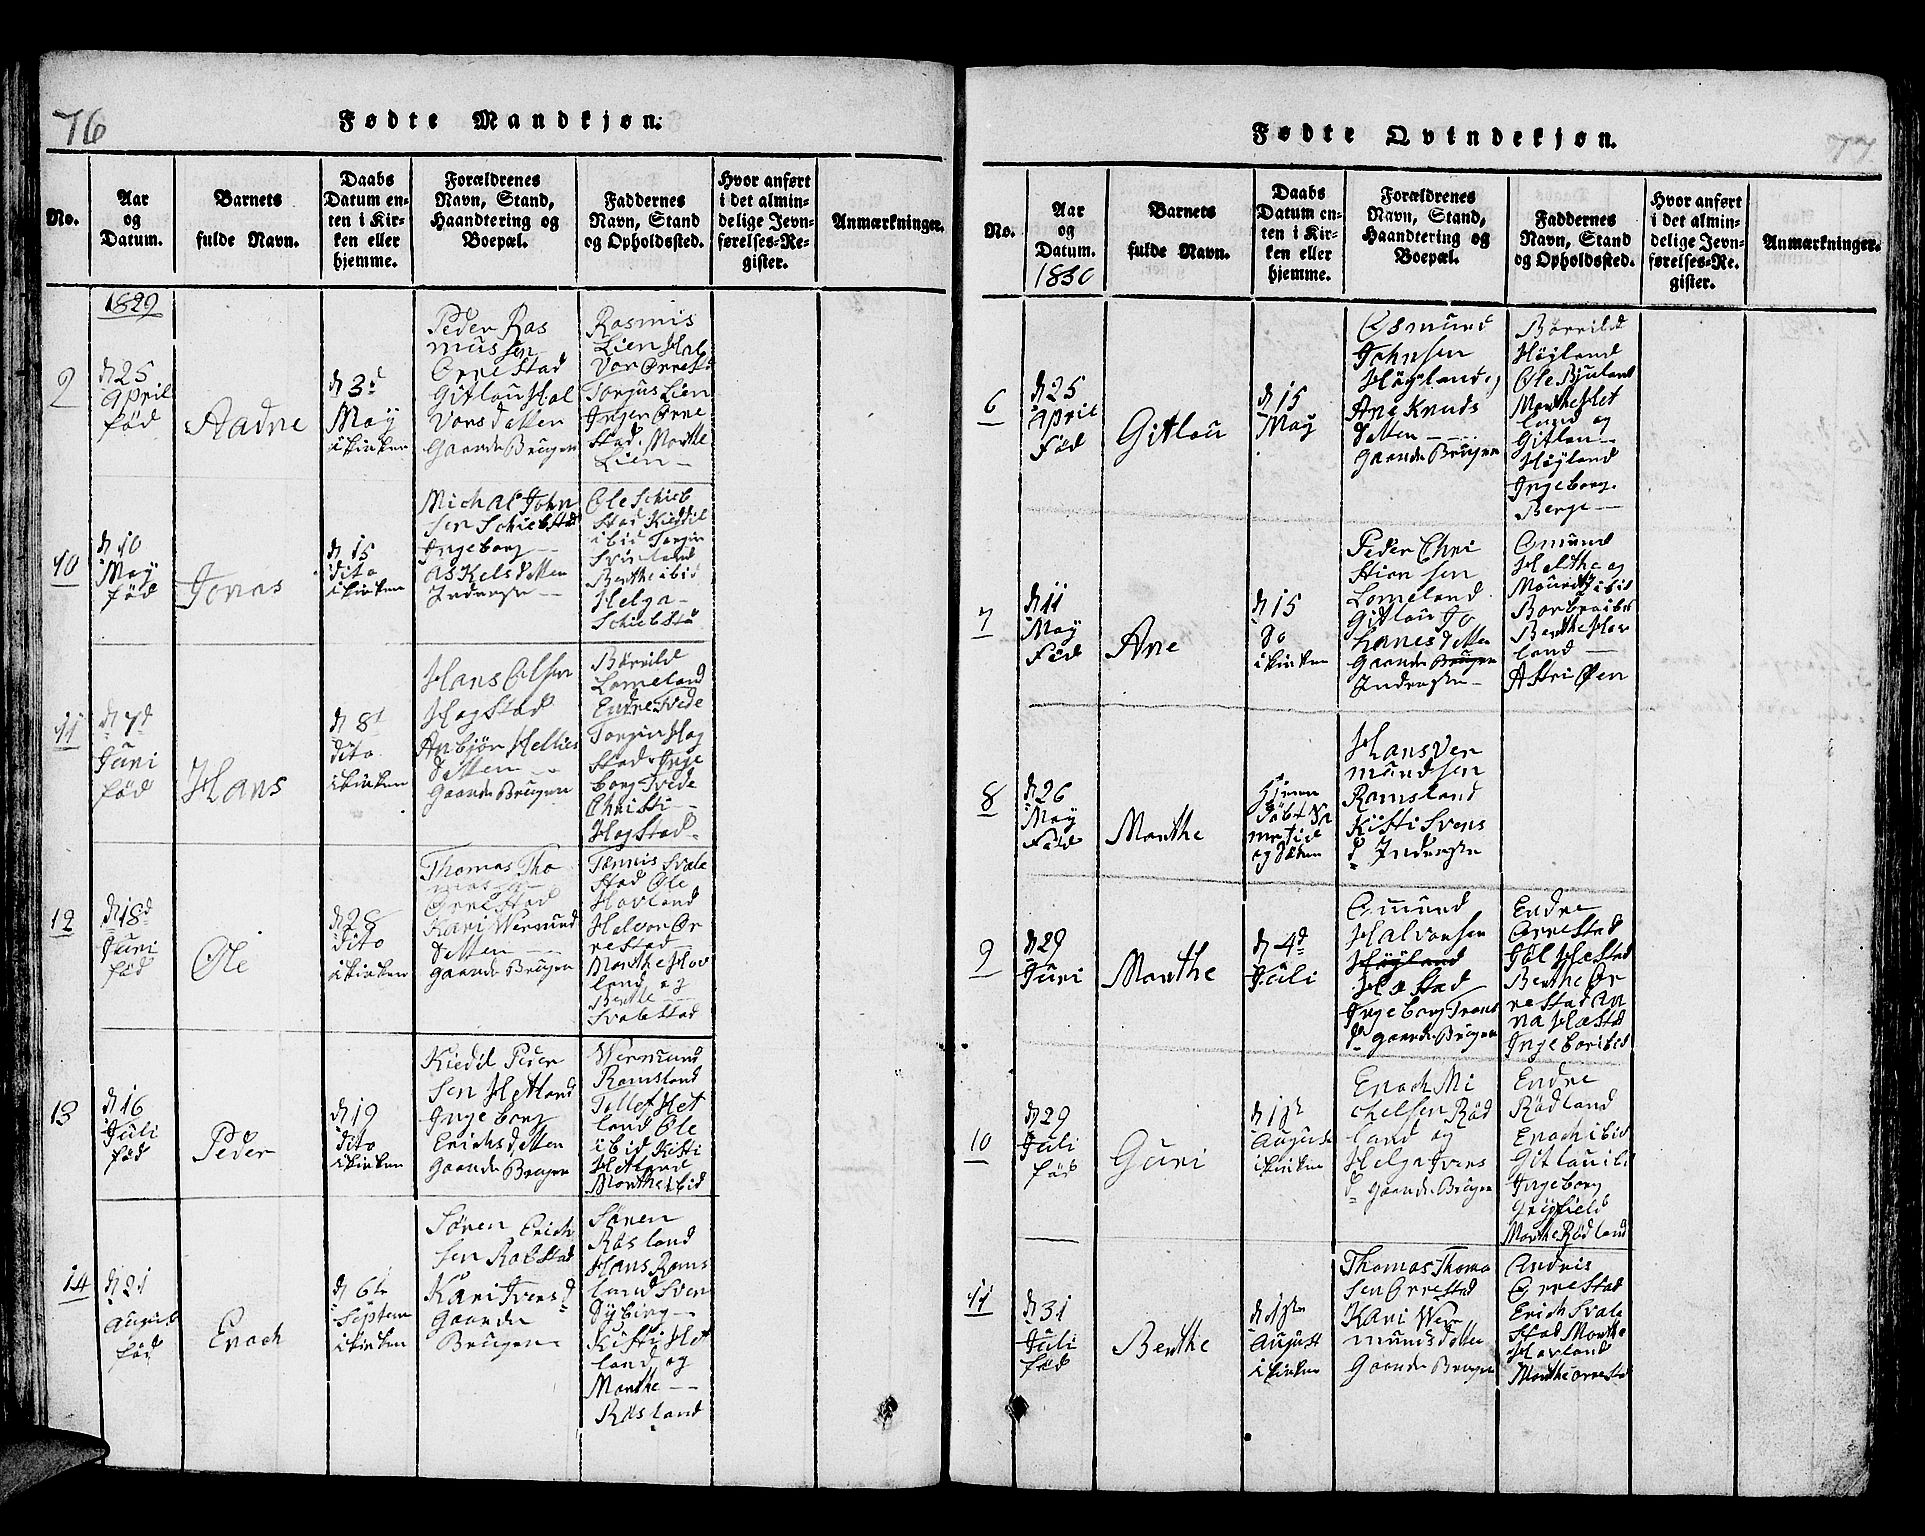 76
Fødte Mandkjøn.
No.
Aar
og
Datum.
Barnets
fulde Navn.
Daabs
Datum en-
ten i Kir-
ken eller
hjemme.
Forældrenes
Navn, Stand,
Haandtering og
Boepæl.
Faddernes
Navn, Stand
og Opholdssted.
Hvor anført
i det almin-
delige Jevn-
førelses-Re-
gister.
Anmærkninger.
1829
9
d 25
April
fød
Aadne
d 3d
May
i kirken
Peder Ras
mussen
Orrestad
Gitlou Hal
Vors datter
Gaardr Brugen
Rasmis
Lien Hal
Vor Orrest
Torjus Lien
Inger Orre
Stad. Marthe
Lien
10
d 10
May
fød
Jonas
d 15
dito
i kirken
Michal John
sen Schiebstad
Ingeborg
Askels datter
Inderste
Ole Schieb
Stad Kieddil
ibid Torgier
Svindland
Berthe ibid
Helga
Schiebsta
11
d 7d
Juni
fød
Hans
d 8d
dito
i kirken
Hans Olsen
Hogstad
Anbjør Hellies
datter
Gaardr Brugen
Børrild
Lomeland
Endre Tvede
Torgier Hog
Stad. Inge
borg Tvede
Christi
Hogstad
12
d 18d
Juni
fød
Ole
d 28
dito
i kirken
Thomas Tho
masen
Orrestad
Kari Wermund
datter
Gaardr Brugen
Tønnis Svale
Stad Ole
Hovland
Helvor Or
restad
Marthe Hov
land og
Berthe
Svalestad
13
d 16
Juli
fød
Peder
d 19
dito
i kirken
Kiedil Peder
sen Hetland
Ingeborg
Erichs datter
Gaardr Brugen
Wermund
Ramsland
Tollef Het
land Ole
ibid Kisti
Hetland
Marthe ibid
14
d 21
August
fød
Enoch
d 6te
Septem
i kirken
Søren Erich
sen Robstad
Kari Ivers d
Gaardr
Brugen
Søren
Rosland
Hans Rams
land Sven
Dybing
Kisti Het
land og
Marthe
Rosland
Fødte Qvindekjøn.
No.
Aar
og
Datum.
1830
Barnets
fulde Navn.
Daabs
Datum en-
ten i Kir-
ken eller
hjemme.
Forældrenes
Navn, Stand,
Haandtering og
Boepæl.
Faddernes
Navn, Stand
og Opholdssted.
Hvor anført
i det almin-
delige Jevn-
førelses-Re-
gister.
Anmærkninger.
6
d 25
April
Fød
Gitlou
d 15
May
Osmund
Johnsen
Høyland og
Ane Knuds
datter
Gaardr Brugen
Børrild
Høyland
Ole Bjuland
Marthe Het
land og
Gitlou
Høyland
Ingeborg
Berge
7
d 11
May
Fød
Ane
d 15
do
i kirken
Peder Chri
stiansen
Lomeland
Gitlou Jo
hanes datter
Gaardr Brugen
Inderste
Omund
Helthe og
ibid
Barbra ibid
Berthe Hov
land
Astri Øen
8
d 26
May
Fød
Marthe
Hjeme
døbt
og døde
Hans Ver
mundsen
Ramsland
Kisti Svens
d Inderste
9
d 29
Juni
Marthe
d 4d
Juli
Omund
Halvorsen
Høyland
Hæstad
Ingeborg Trons
d Gaardr Brugen
Endre
Orrestad
Hæstad
Berthe Or
restad An
na Hæstd
Ingebor ibid
10
d 29
Juli
fød
Guri
d 1ste
August
i kirken
Enoch Mi
chelsen Rød
land og
Helga Ivers
d Gaardr Brugen
Endre
Rødland
Enoch ibid
Gitlou ibi
Ingeborg
Marthe Rødland
11
d 31
Juli
fød
Berthe
d 1ste
August
i kirken
Thomas Thoma
sen Orrestad
Kari Wer
munds datter
Gaardr Brugen
Andris
Orrestad
Erich Svale
stad Marthe
Hovland
Marthe Orrestd